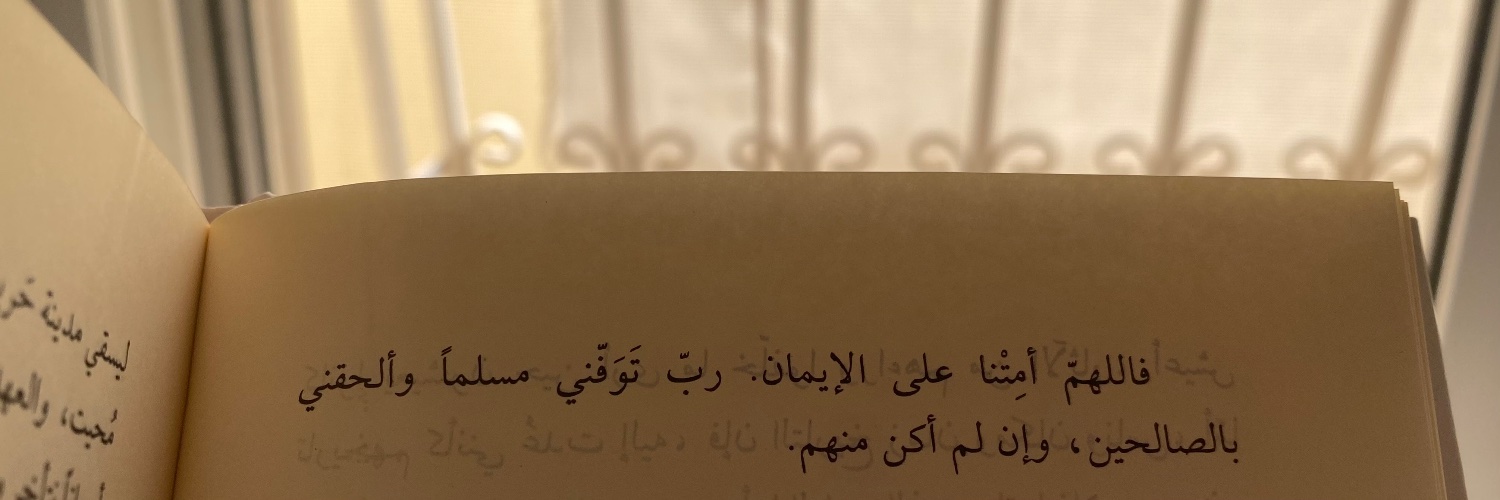 فاللهمّ أمِتْنا على الإيمان. ربّ تَوَفّني مسلماً وألحقني
بالصالحين، وإن لم أكن منهم.
ليسقي مدينة
مُحيت، والعها